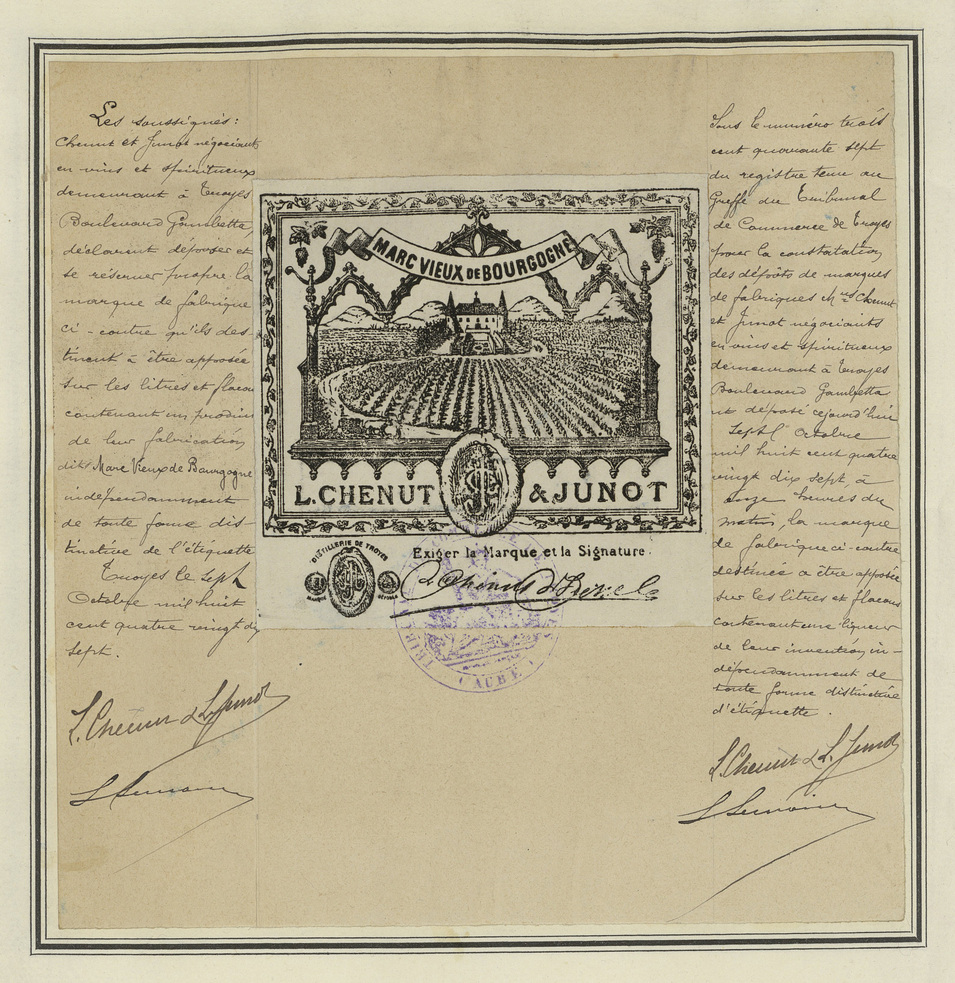 Les soussignés :
Chenut et Junot négociants
en vins et spiritueux
demeurant à Troyes
Boulevard Gambetta
déclarent déposer et
se réserver propre la
marque de fabrique
ci-contre qu'ils des-
tinent à être apposée
sur les litres et flacons
contenant un produit
de leur fabrication
dit Marc Vieux de Bourgogne
indépendamment
de toute forme dis-
tinctive de l'étiquette
Troyes le sept
Octobre mil huit
cent quatre vingt dix
sept.
L. Chenut & L. Junot
MARC VIEUX DE BOURGOGNE
L. CHENUT & JUNOT
Exiger la Marque et la Signature.
DISTILLERIE DE TROYES
AUBE
Sous le numéro trois
cent quarante sept
du registre tenu au
Greffe du Tribunal
de Commerce de Troyes
pour la constatation
des dépôts de marques
de fabriques Mrs Chenut
et Junot négociants
en vins et spiritueux
demeurant à Troyes
Boulevard Gambetta
ont déposé cejourd'hui
sept Octobre
mil huit cent quatre
vingt dix sept, à
onze heures du
matin, la marque
de fabrique ci-contre
destinée a être apposée
sur les litres et flacons
contenant une liqueur
de leur invention in-
dépendamment de
toute forme distinctive
d'étiquette.
L. Chenut & L. Junot